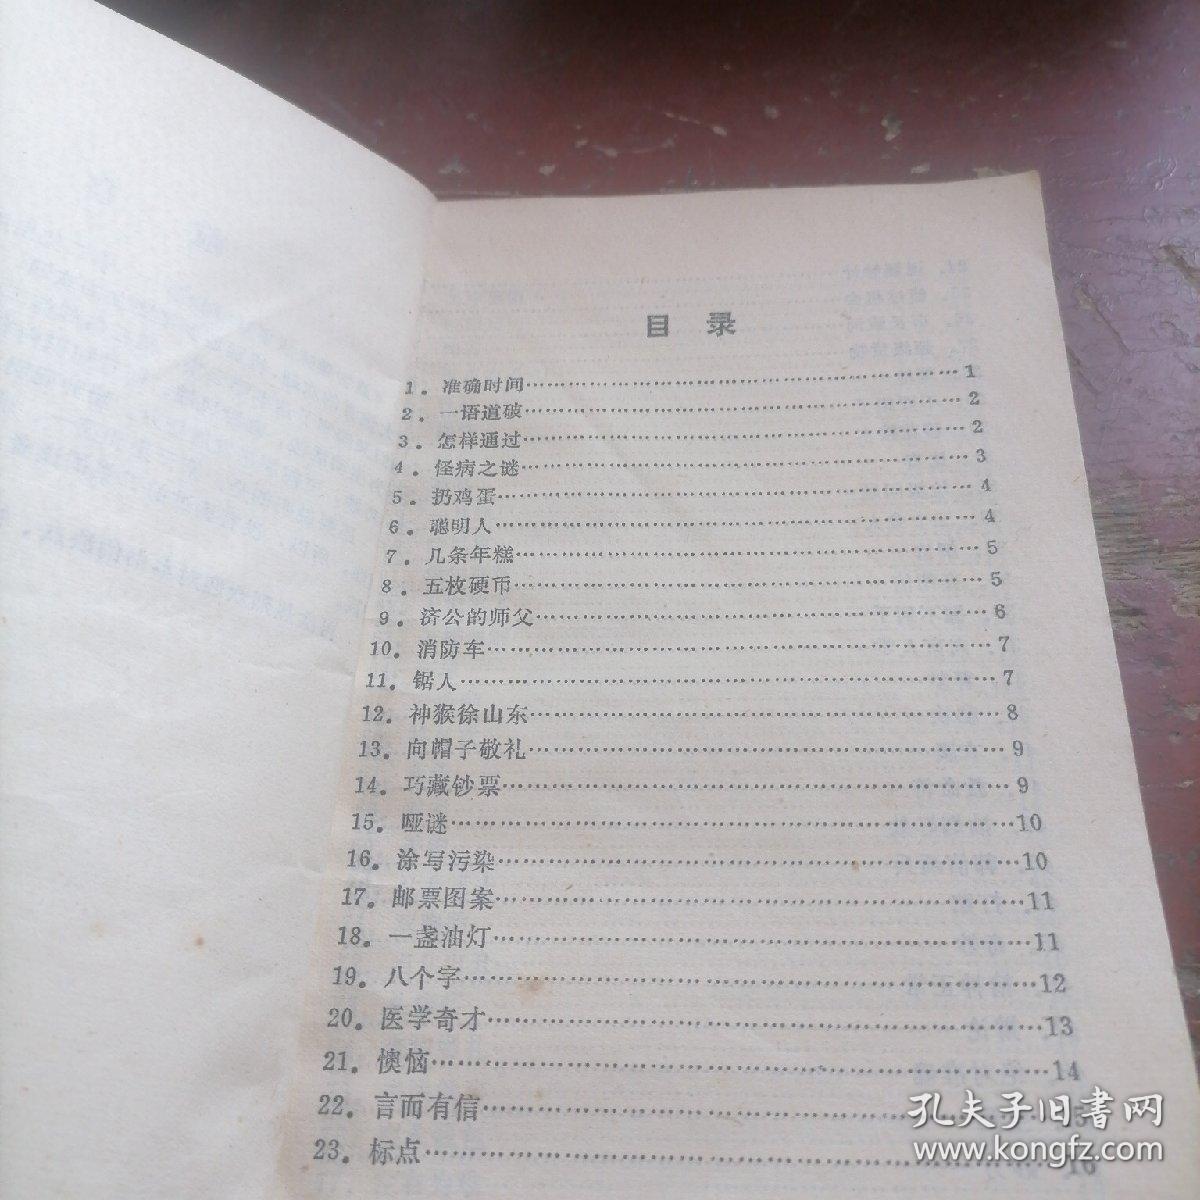 目录
1. 准确时间……1
2. 一语道破……2
3. 怎样通过……2
4. 怪病之谜……3
5. 扔鸡蛋……4
6. 聪明人……4
7. 几条年糕……5
8. 五枚硬币……5
9. 济公的师父……6
10. 消防车……7
11. 锯人……7
12. 神猴徐山东……8
13. 向帽子敬礼……9
14. 巧藏钞票……9
15. 哑谜……10
16. 涂写污染……10
17. 邮票图案……11
18. 一盏油灯……11
19. 八个字……12
20. 医学奇才……13
21. 懊恼……14
22. 言而有信……15
23. 标点……16
孔夫子旧书网
www.kongfz.com